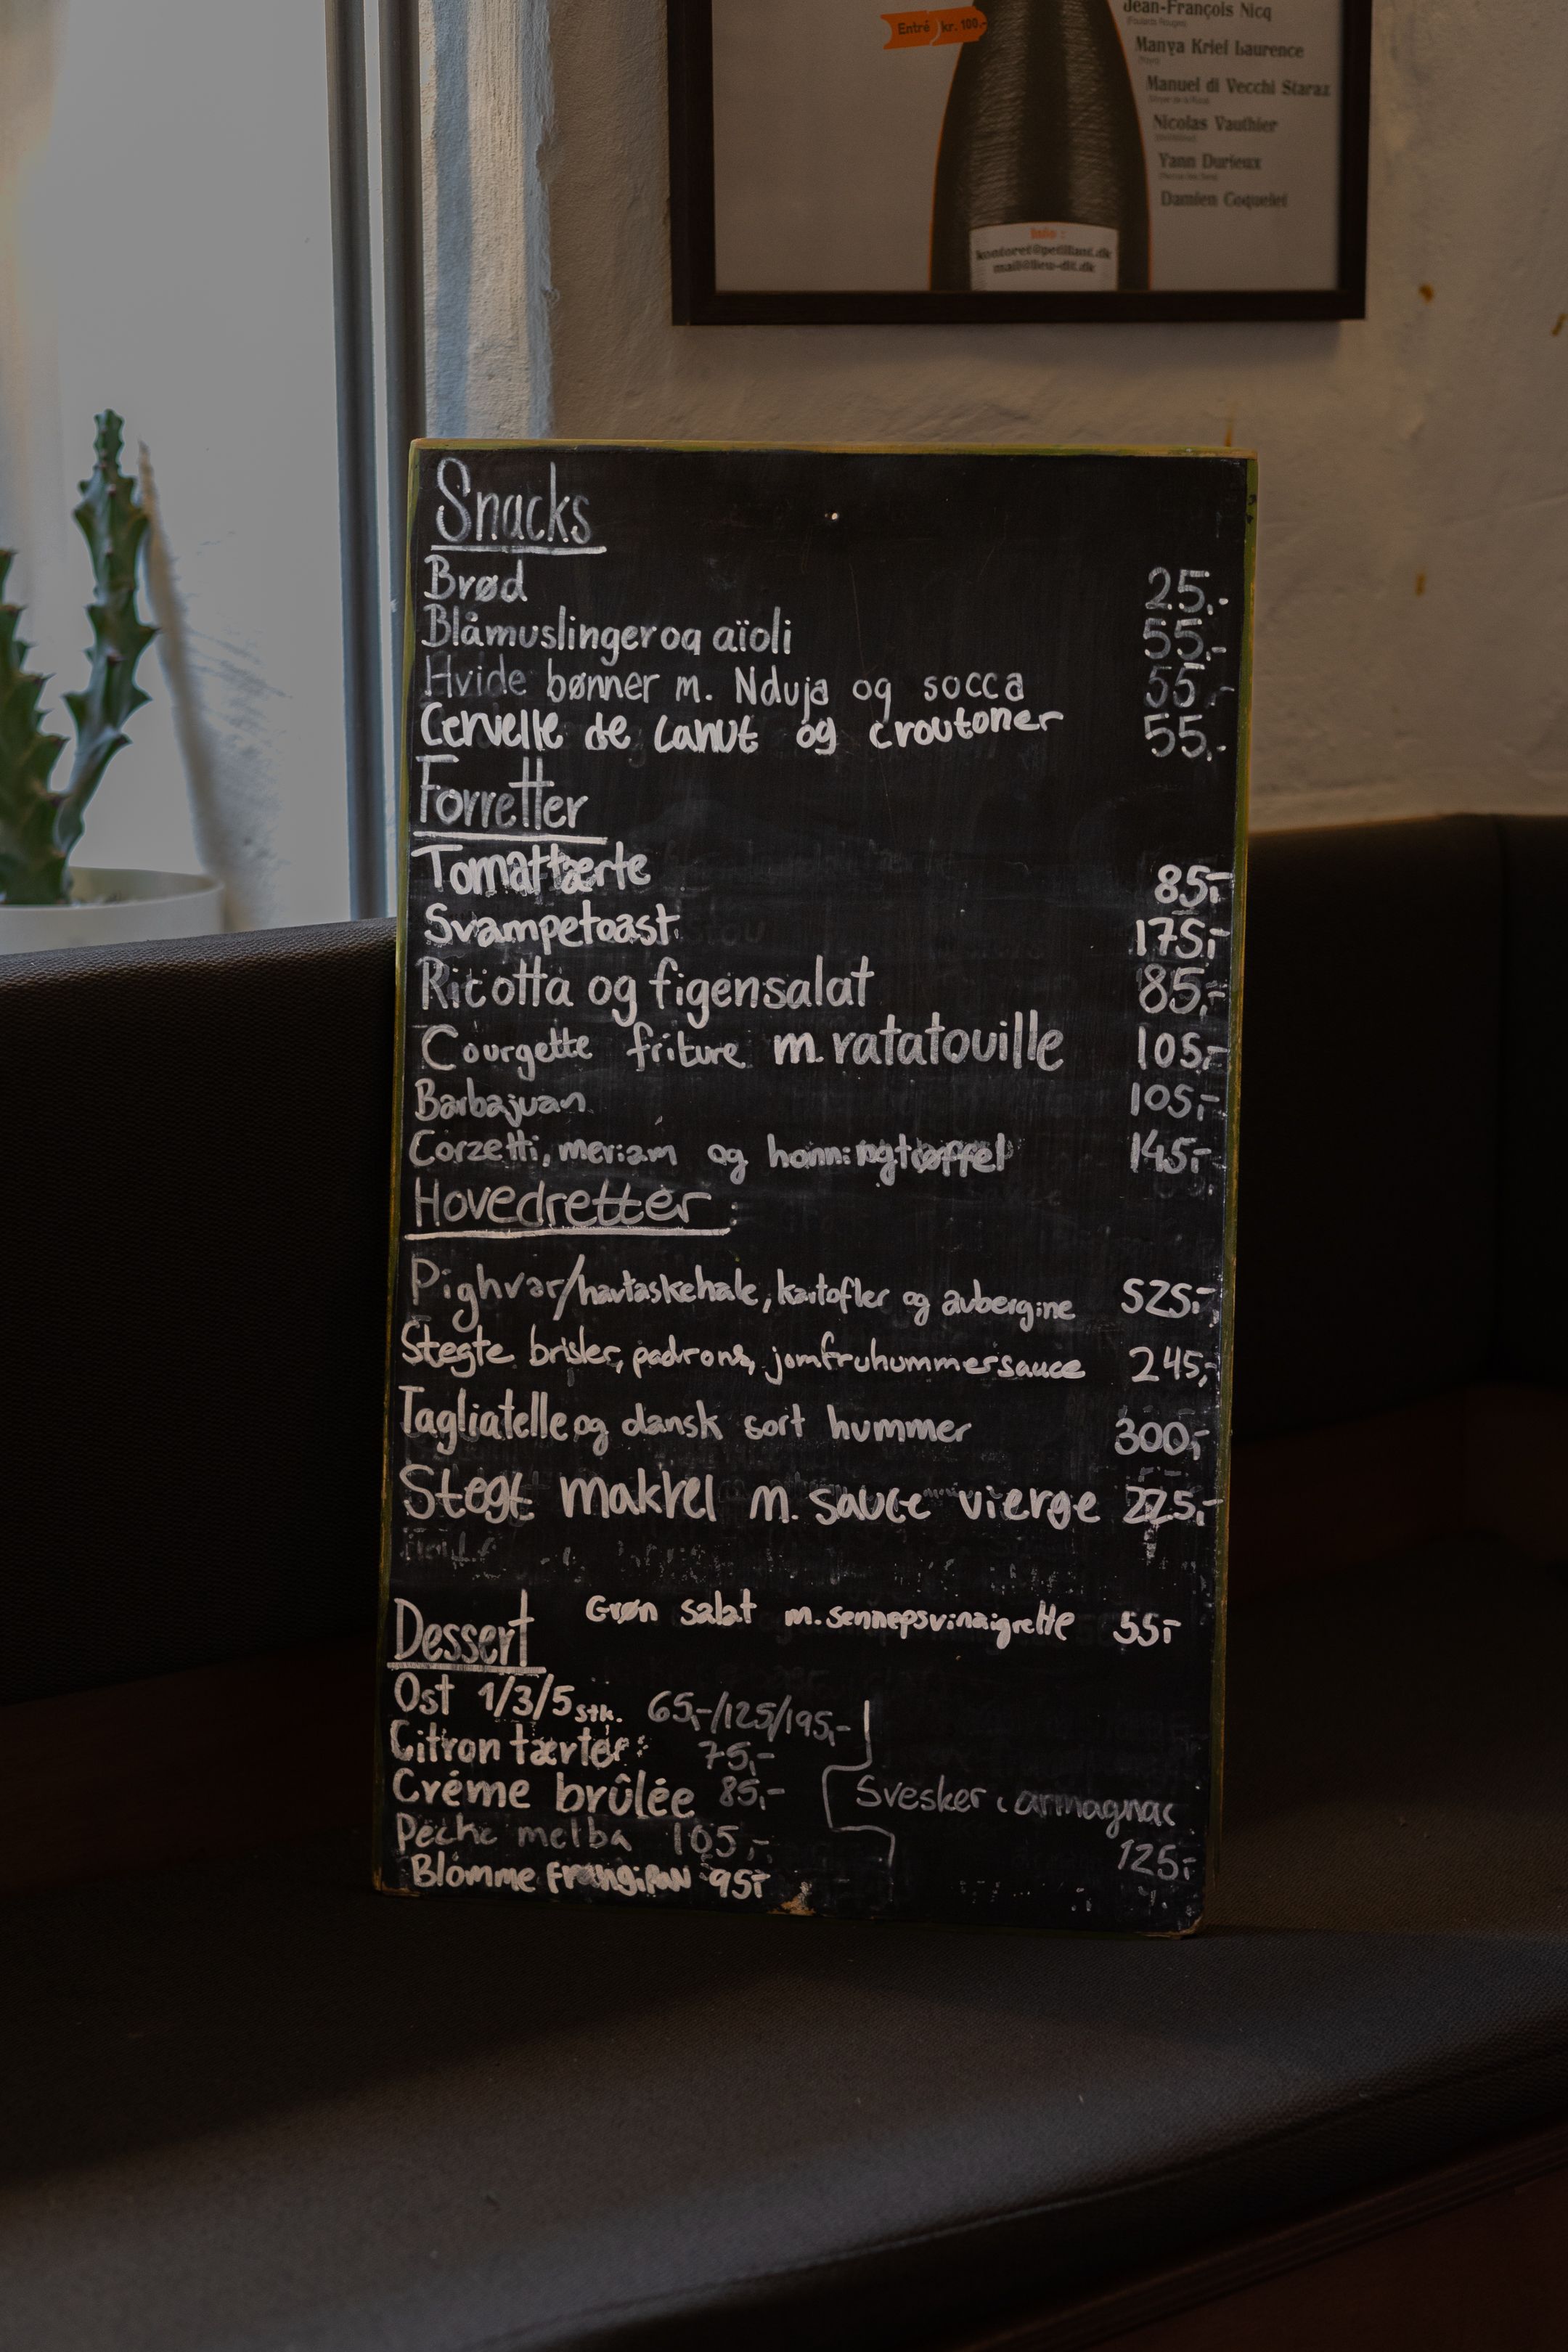 Entré kr. 100,-
Jean-François Nicq
Manya Krief Laurence
Manuel di Vecchi Starax
Nicolas Vauthier
Yann Durieux
Damien Coquelet
Info :
kontoret@petillant.dk
mail@lieu-dit.dk
Snacks
Brød 25,-
Blåmuslinger og aïoli 55,-
Hvide bønner m. Nduja og socca 55,-
Cervelle de Canut og croutoner 55,-
Forretter
Tomattærte 85,-
Svampetoast 175,-
Ricotta og figensalat 85,-
Courgette friture m. ratatouille 105,-
Barbajuan 105,-
Corzetti, meriam og honningtrøffel 145,-
Hovedretter
Pighvar/havtaskehale, kartofler og aubergine 525,-
Stegte brisler, padrons, jomfruhummersauce 245,-
Tagliatelle og dansk sort hummer 300,-
Stegt makrel m. sauce vierge 225,-
Grøn salat m. sennepsvinaigrette 55,-
Dessert
Ost 1/3/5 stk. 65,-/125/195,-
Citrontærte 75,-
Créme brûlée 85,-
Svesker i armagnac
125,-
Peche melba 105,-
Blomme Frangipan 95,-